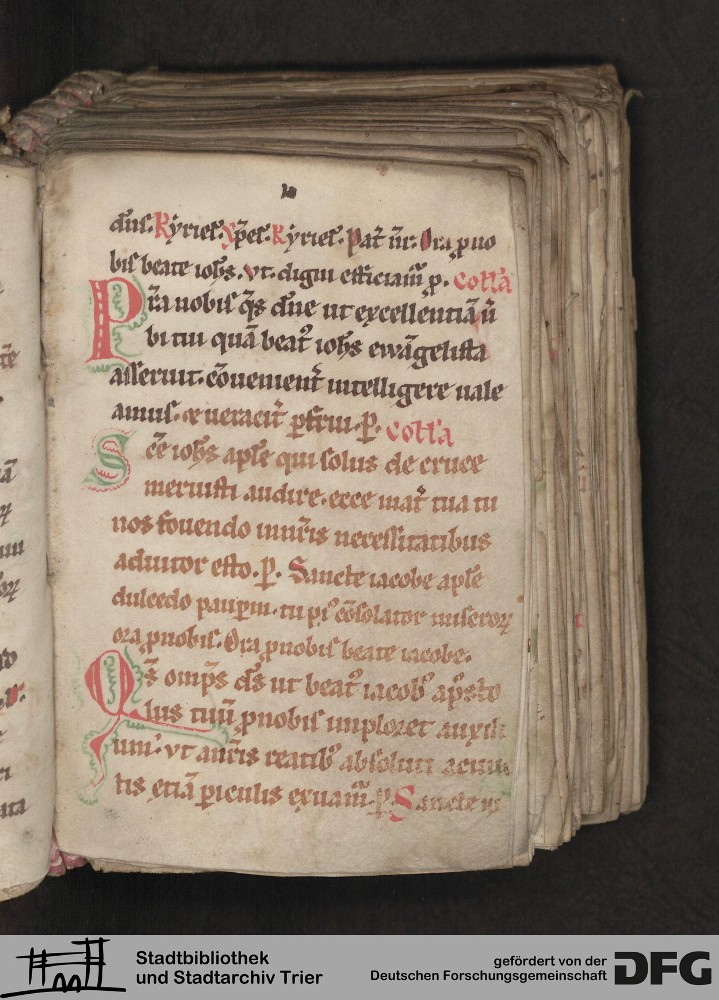 dn̄s. Kyriel̄. xp̄el̄. kyriel̄. Pat̄ nr̄. Ora ꝓ no
bis beate ioh̄s. vt. digni efficiam̄ p. coll̄a
Pr̄a nobis q̄s dn̄e ut excellentiā ū
bi tui quā beat⁹ ioh̄s ewāgelista
asseruit. cōuenient̄ intelligere uale
amus. ⁊ ueracit̄ ꝑfrui. P. coll̄a
Sc̄e ioh̄s aple qui solus de cruce
meruisti audire. ecce mat̄ tua tu
nos fouendo in nr̄is necessitatibus
adiutor esto. P. Sancte iacobe aple
dulcedo pauꝑum. tu pi⁹ cōsolator miseroꝝ
ora ꝓ nobis. Ora ꝓ nobis beate iacobe.
Qs̄ omp̄s ds̄ ut beat⁹ iacob⁹ ap̄sto
lus tuū ꝓ nobis imploret auxili
um. vt a nr̄is reatib⁹ absoluti a cunc
tis etiā ꝑiculis exuam̄. P. Sancte
Stadtbibliothek
und Stadtarchiv Trier
gefördert von der
Deutschen Forschungsgemeinschaft DFG